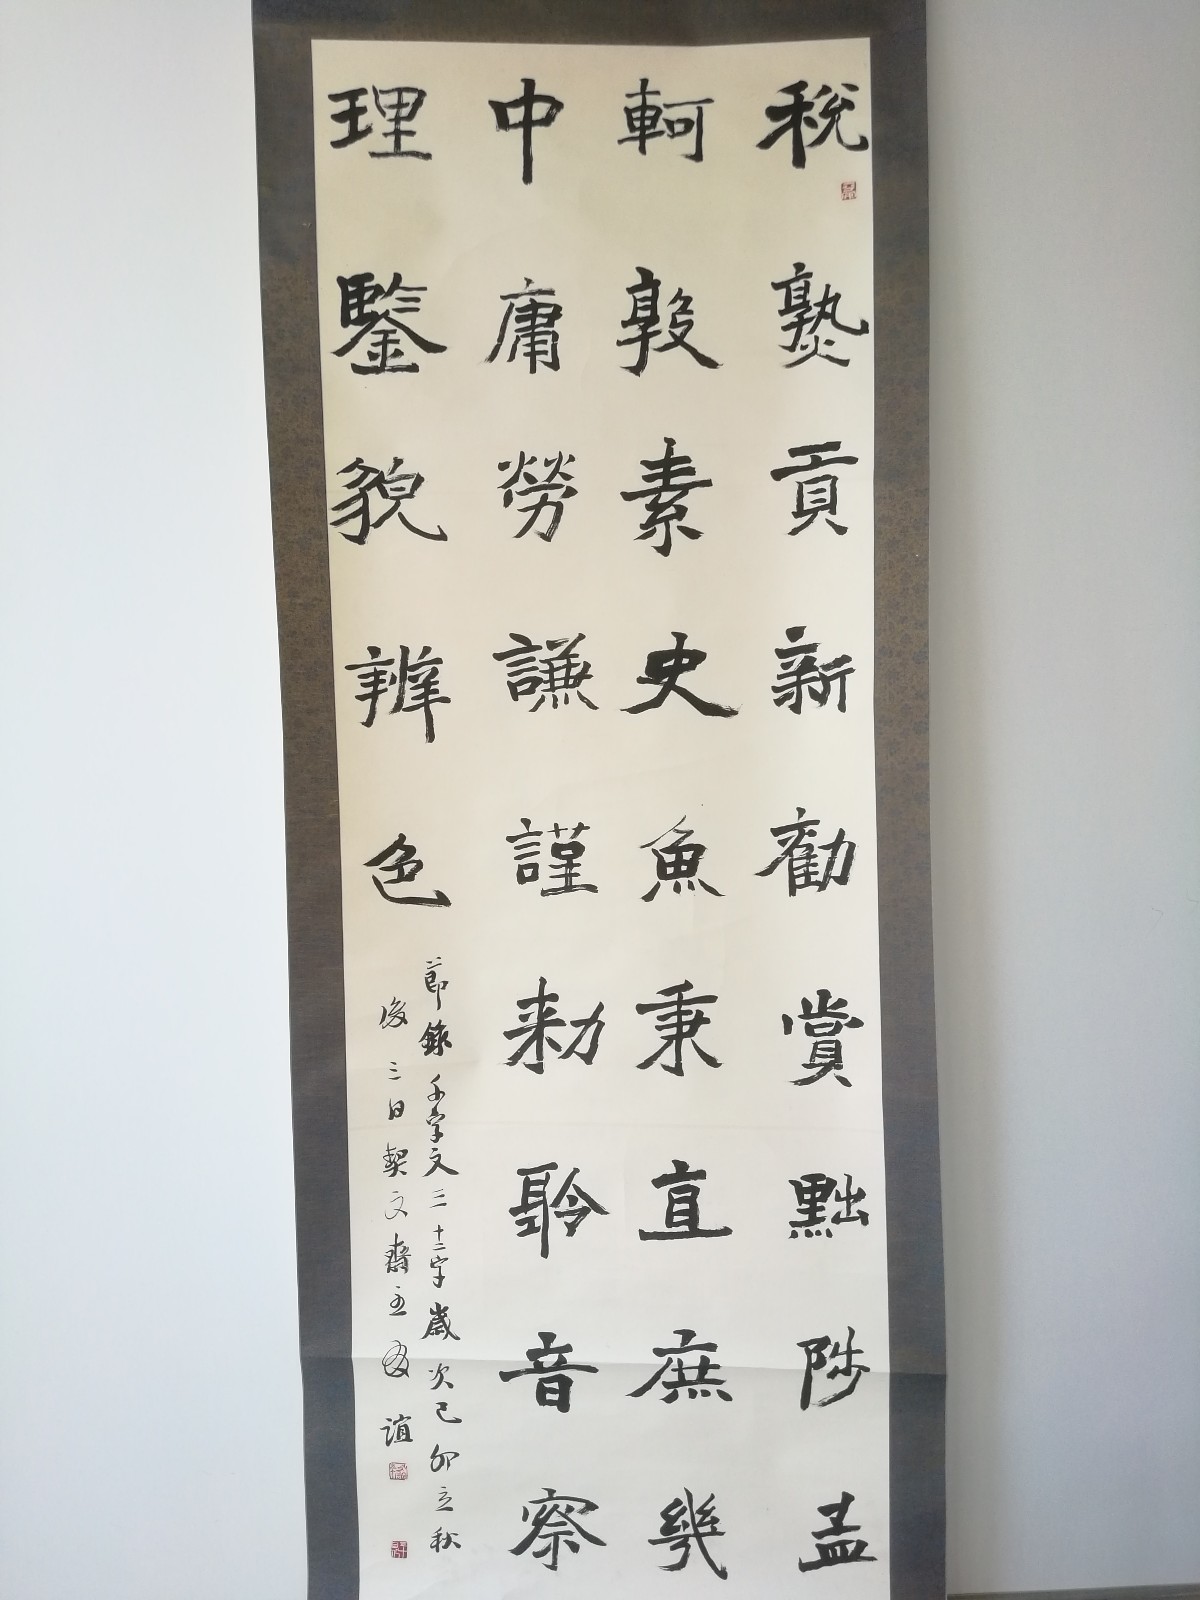 稅熟貢新勸賞黜陟孟
軻敦素史魚秉直庶幾
中庸勞謙謹勅聆音察
理鑒貌辨色
節錄千字文三十二字歲次己卯立秋
後三日契文齋主
誼